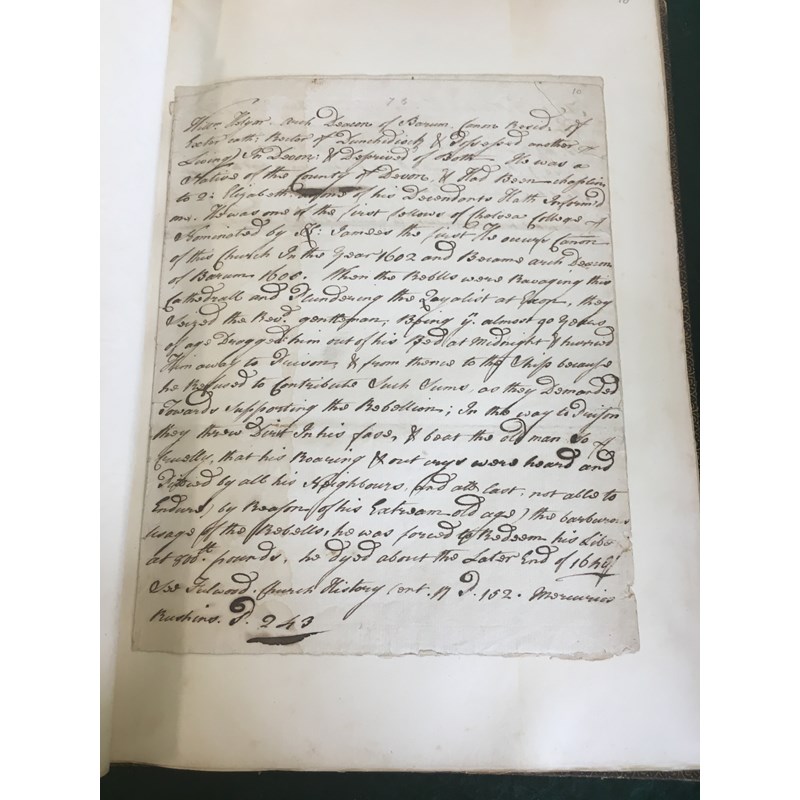 10
73
Will^m. Helyar. Arch Deacon of Barum. Canon Resid. of
Exeter cath: Rector of Dunchidiock & Possessed another
Living In Devon: & Deprived of Both He was a
Native of the County of Devon, & Had Been chaplin
to Q: Elizabeth: as one of his Decendants Hath Inform'd
me. He was one of the first fellows of Chelsea College
Nominated by K: Jamees the first He occurs Canon
of this Church In the Year 1602 and Became arch Deacon
of Barum 1605. When the Rebells were Ravaging this
Cathedrall and Plundering the Loyalist at Exon, they
Seized the Rev^d. gentleman, Being y^n. almost 90 years
of age Dragged him out of his Bed at Midnight & hurried
Him away to Prison, & from thence to the Ship because
he Refused to Contribute Such Sums as they Demanded
Towards Supporting the Rebellion; In the way to Prison
they threw Dirt In his face, & beat the old man so
Cruelly, that his Roaring & out crys were heard and
Pitied by all his Neighbours, and att last, not able to
Endure) by Reason of his Extream old age) the barbarous
usage of the Rebells, he was forced to Redeem his Libe
at 800^th. pounds, he dyed about the Later End of 1645
See Fulwood. Church History Cent. 17 P. 152. Mercurius
Rusticus. P. 243